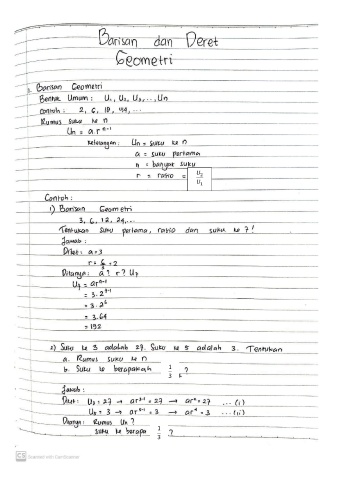 Barisan dan Deret
Geometri
Barisan Geometri
Bentuk Umum : U₁, U₂, U₃, ..., Un
Contoh : 2, 6, 18, 54, ...
Rumus suku ke n
Un = a.rⁿ⁻¹
Keterangan: Un = suku ke n
a = suku pertama
n = banyak suku
r = rasio = U₂/U₁
Contoh :
1) Barisan Geometri
3, 6, 12, 24, ...
Tentukan suku pertama, rasio dan suku ke 7!
Jawab :
Diket : a = 3
r = 6/3 = 2
Ditanya : a? r? U₇
U₇ = arⁿ⁻¹
= 3.2⁷⁻¹
= 3.2⁶
= 3.64
= 192
2) Suku ke 3 adalah 27. Suku ke 5 adalah 3. Tentukan
a. Rumus suku ke n
b. Suku ke berapakah 1/3 ?
Jawab :
Diket : U₃ = 27 → ar³⁻¹ = 27 → ar² = 27 ... (i)
U₅ = 3 → ar⁵⁻¹ = 3 → ar⁴ = 3 ... (ii)
Ditanya : Rumus Un ?
suku ke berapa 1/3 ?
CS Scanned with CamScanner